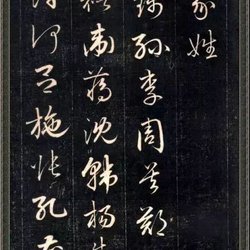 家姓
錢孫李周吳鄭
褚衛蔣沈韓楊朱
許何呂施張孔曹